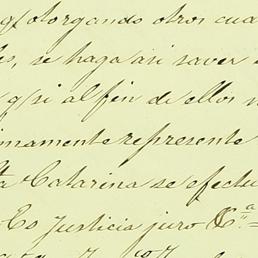 q.e otorgando otros cua
se haga asi saver
q.e si al fin de ellos
mamente represente
Catarina se efectu
Es Justicia juro C.a